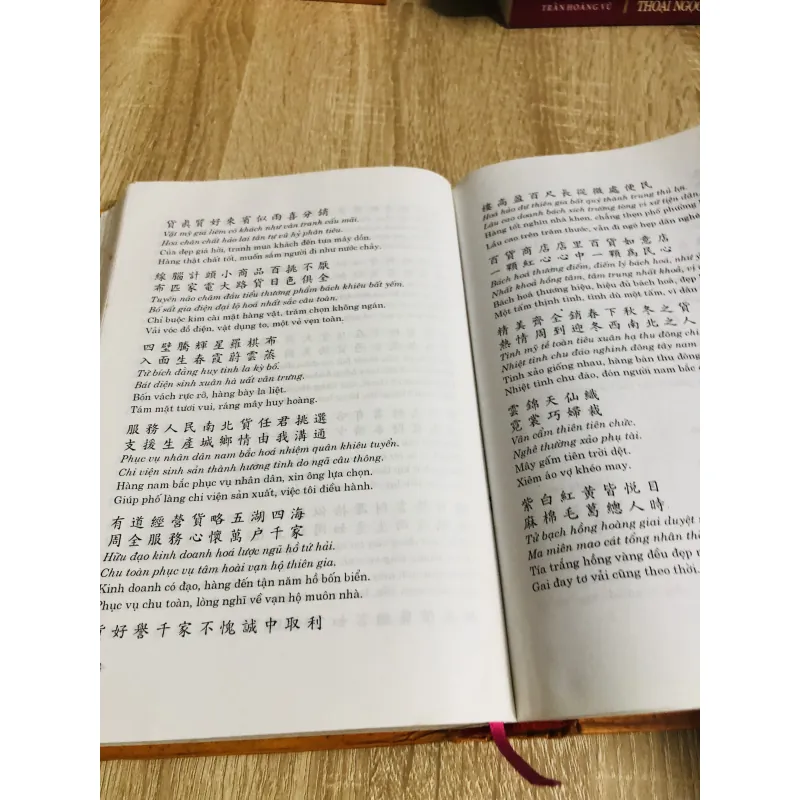 TRẦN HOÀNG VŨ
THOẠI NGỌC
貨眞質好來賓似雨喜分銷
Vật mỹ giá liêm cố khách như vân tranh cấu mãi.
Hoá chân chất hảo lai tân tự vũ hỷ phân tiêu.
Của đẹp giá hời, tranh mua khách đến tựa mây dồn.
Hàng thật chất tốt, muốn sắm người đi như nước chảy.
線腦計頭小商品百挑不厭
布匹家電大路貨目色俱全
Tuyến não châm đầu tiểu thương phẩm bách khiêu bất yếm.
Bố sất gia điện đại lộ hoá nhất sắc câu toàn.
Chỉ buộc kim cài mặt hàng vặt, trăm chọn không ngán.
Vải vóc đồ điện, vật dụng to, một vẻ vẹn toàn.
四壁騰輝星羅棋布
八面生春霞蔚雲蒸
Tứ bích đằng huy tinh la kỳ bố.
Bát diện sinh xuân hà uất vân trưng.
Bốn vách rực rỡ, hàng bày la liệt.
Tám mặt tươi vui, ráng mây huy hoàng.
服務人民南北貨任君挑選
支援生產城鄉情由我溝通
Phục vụ nhân dân nam bắc hoá nhiệm quân khiêu tuyển.
Chi viện sinh sản thành hương tình do ngã câu thông.
Hàng nam bắc phục vụ nhân dân, xin ông lựa chọn.
Giúp phố làng chi viện sản xuất, việc tôi điều hành.
有道經營貨略五湖四海
周全服務心懷萬户千家
Hữu đạo kinh doanh hoá lược ngũ hồ tứ hải.
Chu toàn phục vụ tâm hoài vạn hộ thiên gia.
Kinh doanh có đạo, hàng đến tận năm hồ bốn biển.
Phục vụ chu toàn, lòng nghĩ về vạn hộ muôn nhà.
好譽千家不愧誠中取利
樓高盈百尺長從微處便民
Hoá hảo dư thiên gia bất quý thành trung thủ lợi.
Lâu cao doanh bách xích trường tòng vi xứ tiện dân.
Hàng tốt nghìn nhà khen, chẳng thẹn phố phường
Lầu cao trên trăm thước, vẫn đi ngõ hẹp dân nghèo
百貨商店店里百貨如意店
一顆紅心心中一顆爲民心
Bách hoá thương điếm, điếm lý bách hoá, như ý
Nhất khoả hồng tâm, tâm trung nhất khoả, vị
Bách hoá thương hiệu, hiệu đủ bách hoá, đẹp
Một tấm thịnh tình, tình dù một tấm, vì dân
精美齊全銷春下秋冬之貨
熱情周到迎冬西南北之人
Tinh mỹ tề toàn tiêu xuân hạ thu đông chi
Nhiệt tình chu đáo nghinh đông tây nam
Tinh xảo giống nhau, hàng bán thu đông
Nhiệt tình chu đáo, đón người nam bắc
雲錦天仙織
霓裳巧婦裁
Vân cẩm thiên tiên chức.
Nghê thường xảo phụ tài.
Mây gấm tiên trời dệt.
Xiêm áo vợ khéo may.
紫白紅黃皆悦目
麻棉毛葛總人時
Tử bạch hồng hoàng giai duyệt
Ma miên mao cát tổng nhân
Tía trắng hồng vàng đều đẹp
Gai đay tơ vải cũng theo thời.